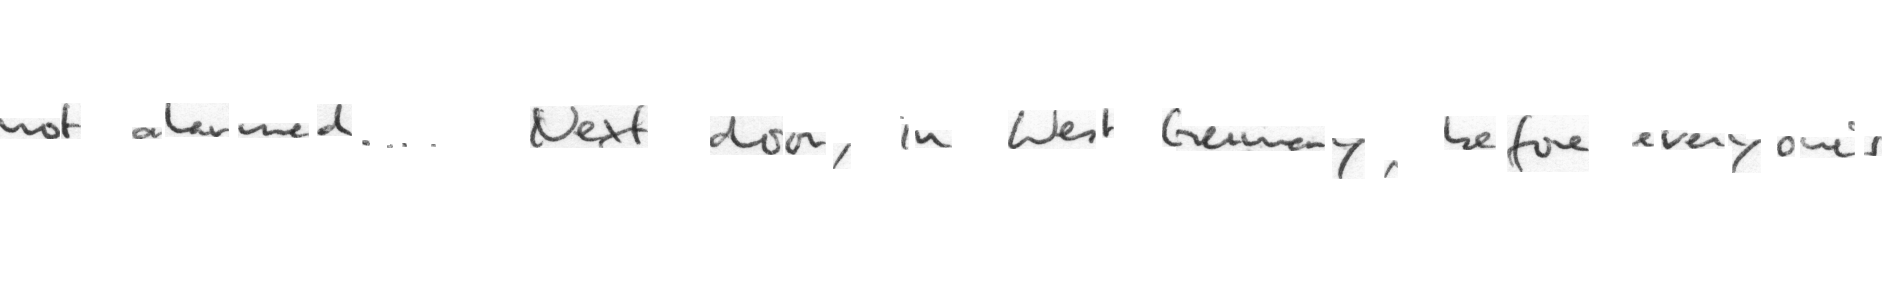 not alarmed.... Next door, in West Germany, before everyone's